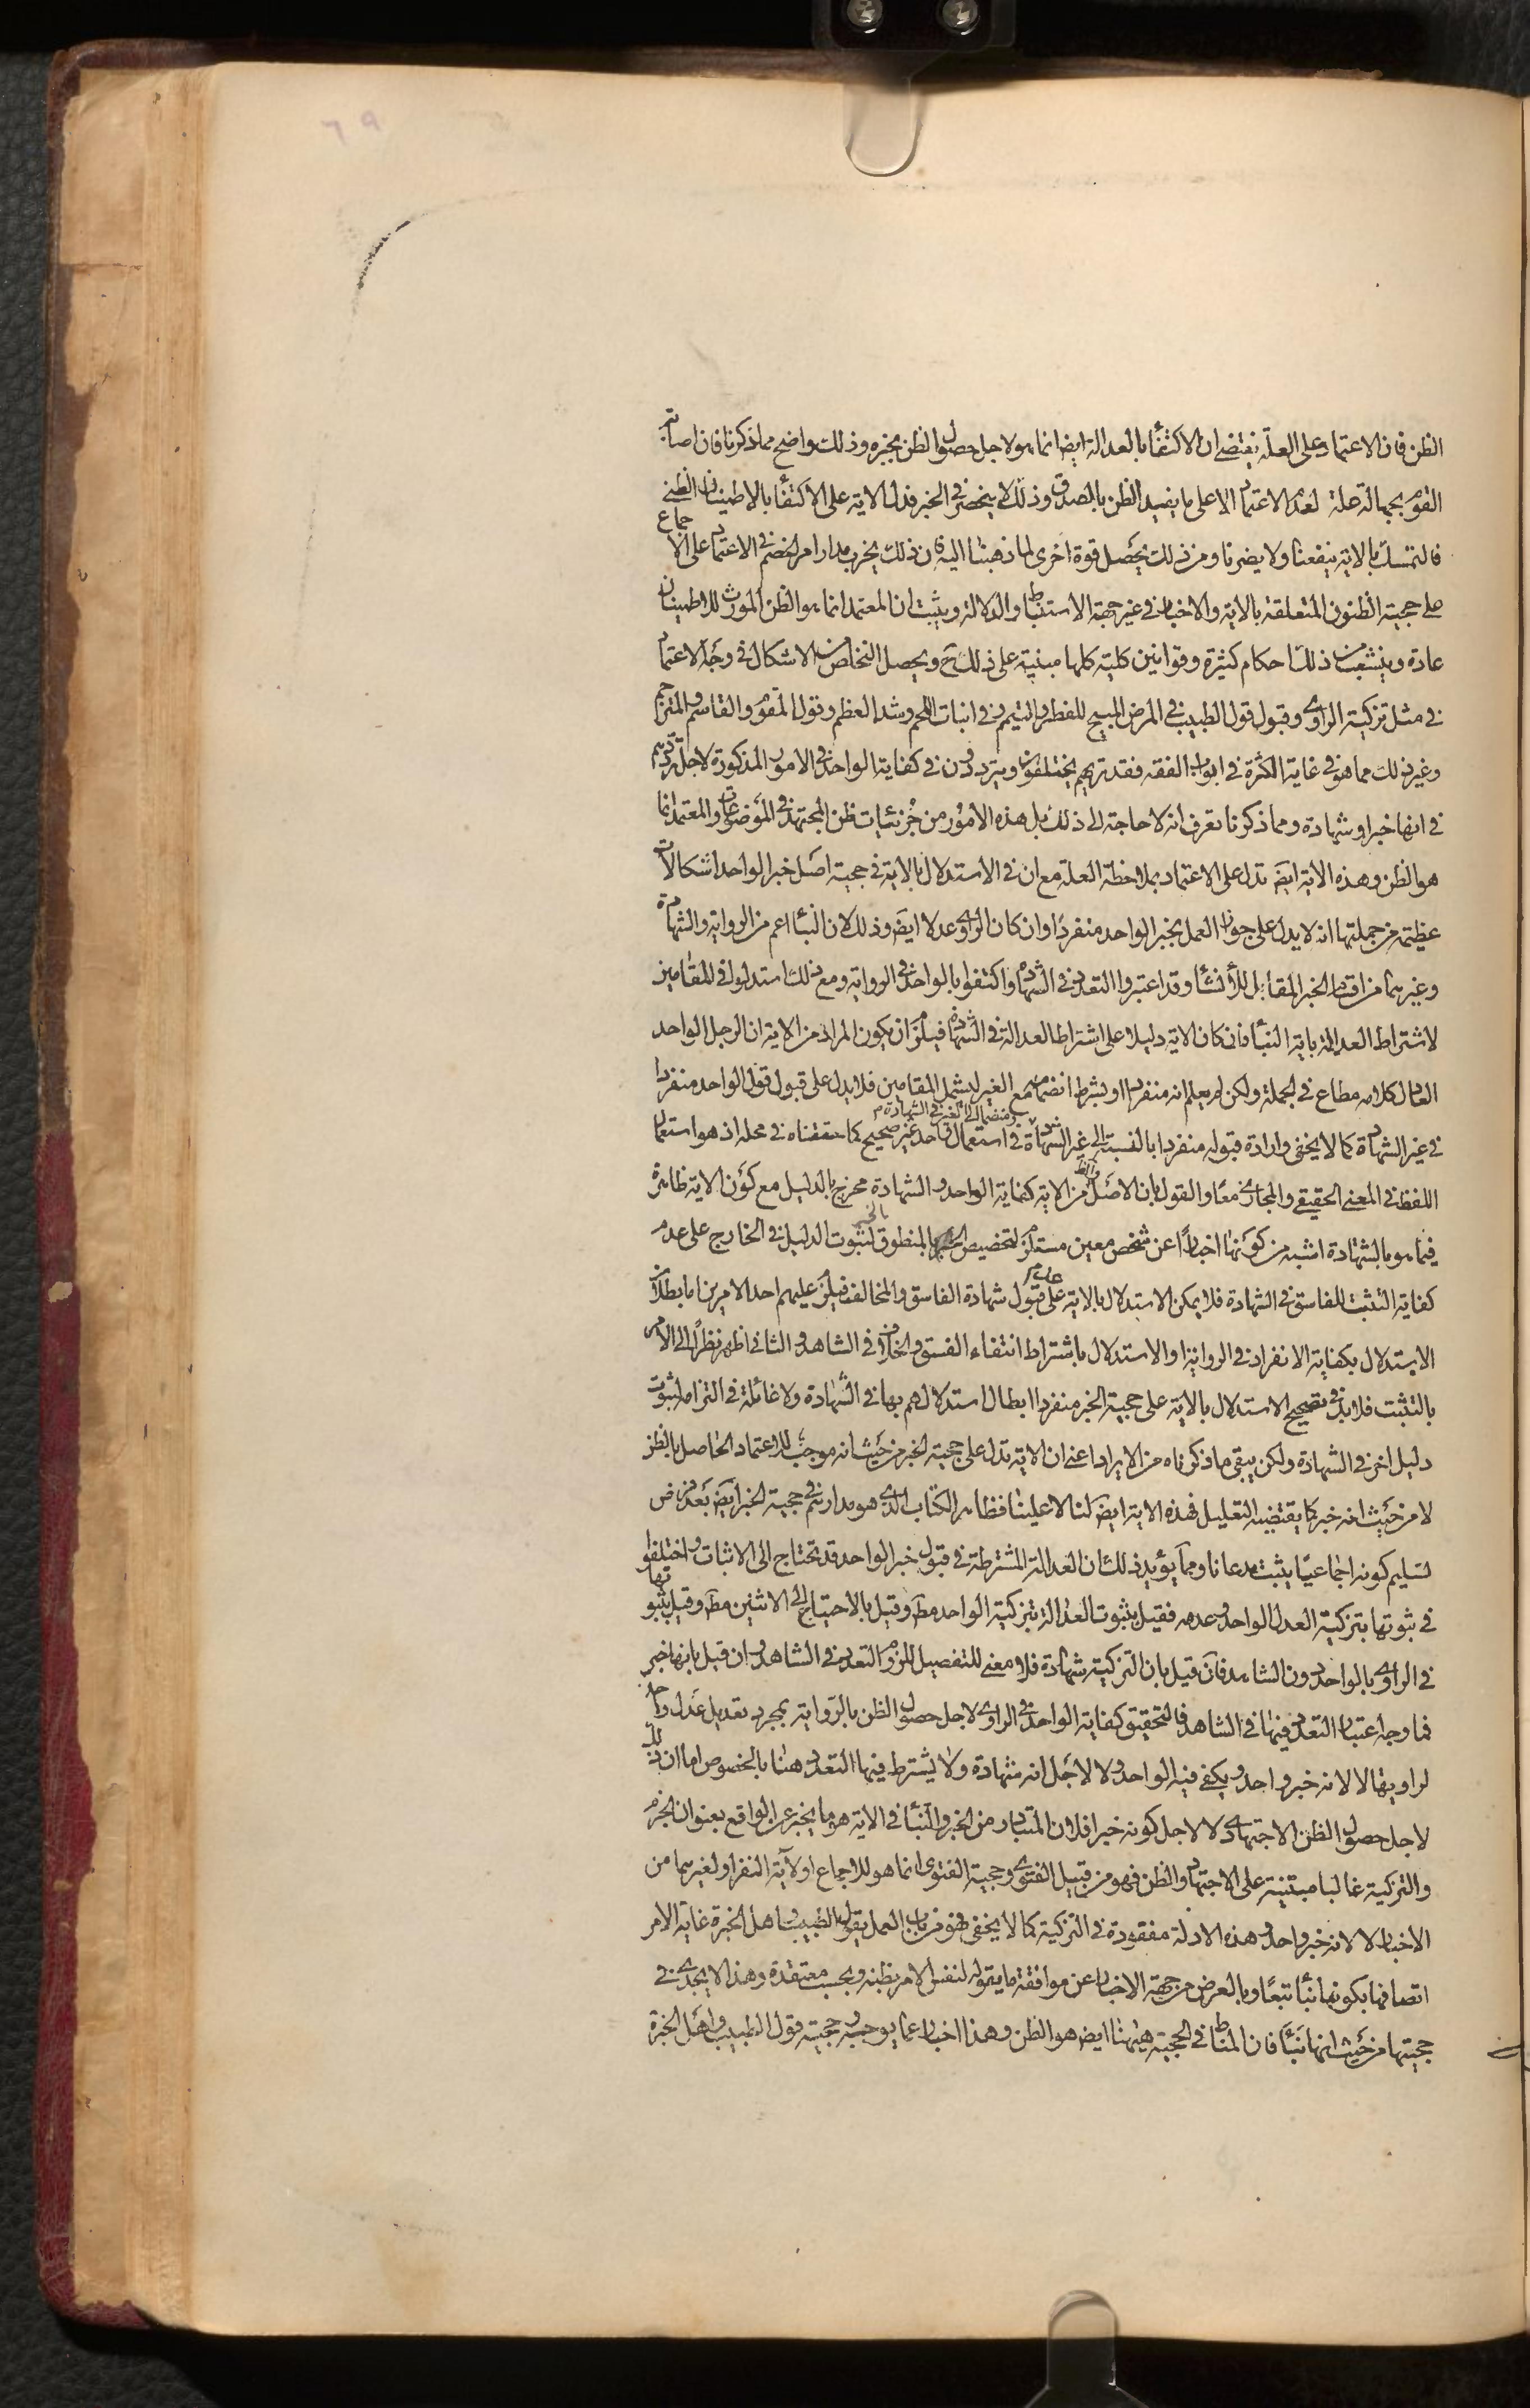 الظن فان الاعتماد على العلة يقتضى ان الاكتفأ بالعدالة ايض انما هو لاجل حصول الظن بخبره وذلك واضح مما ذكرنا فان اصابة
القوم بجهالة علة لعدم الاعتماد الا على ما يفيد الظن بالصدق وذلك لا ينحصر فى الخبر فدل الاية على الاكتفأ بالاطمينان الظنى
فالتمسك بالاية ينفعنا ولا يضرنا ومن ذلك يحصل قوة اخرى لما ذهبنا اليه فان ذلك يخرب مدار امر الخصم فى الاعتماد على الاجماع
على حجية الظنون المتعلقة بالاية والاخبار فى غير جهة الاستنباط والدلالة ويثبت ان المعتمد انما هو الظن المورث للاطمينان
عادة وينشعب من ذلك احكام كثيرة وقوانين كلية كلها مبنية على ذلك ح ويحصل التخلص من الاشكال فى وجه الاعتماد
فى مثل تزكية الراوى وقبول قول الطبيب فى المرض المبيح للفطر والتيمم وفى انبات اللحم وشد العظم وقول المقوم والقاسم والمترجم
وغير ذلك مما هو فى غاية الكثرة فى ابواب الفقه فقد تريهم يختلفون ويترددون فى كفاية الواحد فى الامور المذكورة لاجل ترددهم
فى انها خبر او شهادة ومما ذكرنا تعرف انه لا حاجة الى ذلك بل هذه الامور من جزئيات ظن المجتهد فى الموضوعات والمعتمد انما
هو الظن وهذه الاية ايض تدل على الاعتماد بملاحظة العلة مع ان فى الاستدلال بالاية فى حجية اصل خبر الواحد اشكالات
عظيمة من جملتها انه لا يدل على جواز العمل بخبر الواحد منفردا وان كان الراوى عدلا ايض وذلك لان النبأ اعم من الرواية والشهادة
وغيرهما من اقسام الخبر المقابل للأنشأ وقد اعتبروا التعدد فى الشهادة واكتفوا بالواحد فى الرواية ومع ذلك استدلوا فى المقامين
لاشتراط العدالة باية النبأ فان كان الاية دليلا على اشتراط العدالة فى الشهادة فيلزم ان يكون المراد من الاية ان الرجل الواحد
العادل كلامه مطاع فى الجملة ولكن لم يعلم انه منفردا او بشرط انضمامه مع الغير ليشمل المقامين فلا يدل على قبول قول الواحد منفردا
فى غير الشهادة كما لا يخفى وارادة قبوله منفردا بالنسبة الى غير الشهادة ومنضما الى الغير فى الشهادة فى استعمال واحد غير صحيح كما حققناه فى محله اذ هو استعمال
اللفظ فى المعنى الحقيقى والمجازى معا والقول بان الاصل والظ من الاية كفاية الواحد والشهادة مخرج بالدليل مع كون الاية ظاهرة
فيما هو بالشهادة اشبه من كونها اخبارا عن شخص معين مستلزم لتخصيص الخبر بالمنطوق لثبوت الدليل فى الخارج على عدم
كفاية التثبت للفاسق فى الشهادة فلا يمكن الاستدلال بالاية على عدم قبول شهادة الفاسق والمخالف فيلزم عليهم احد الامرين اما بطلان
الاستدلال بكفاية الانفراد فى الرواية او الاستدلال باشتراط انتفاء الفسق والخلاف فى الشاهد والثانى اظهر نظرا الى الامر
بالتثبت فلا بد فى تصحيح الاستدلال بالاية على حجية الخبر منفردا ابطال استدلالهم بها فى الشهادة ولا غائلة فى التزامه لثبوت
دليل اخر فى الشهادة ولكن يبقى ما ذكرناه من الايراد اعنى ان الاية تدل على حجية الخبر من حيث انه موجب للاعتماد الحاصل بالظن
لا من حيث انه خبر كما يقتضيه التعليل فهذه الاية ايض لنا لا علينا فظاهر الكتاب الذى هو مدارهم فى حجية الخبر ايض بعد فرض
تسليم كونه اجماعيا يثبت مدعانا ومما يؤيد ذلك ان العدالة المشترطة فى قبول خبر الواحد قد تحتاج الى الاثبات واختلفوا
فى ثبوتها بتزكية العدل الواحد وعدمه فقيل بثبوت العدالة بتزكية الواحد مط وقيل بالاحتياج الى الاثنين مط وقيل بثبوتها
فى الراوى بالواحد دون الشاهد فان قيل بان التزكية شهادة فلا معنى للتفصيل للزوم التعدد فى الشاهد وان قيل بانها خبر
فما وجه اعتبار التعدد فيها فى الشاهد فالتحقيق كفاية الواحد فى الراوى لاجل حصول الظن بالرواية بمجرد تعديل عدل واحد
لراويها لا لانه خبر واحد ويكفى فيه الواحد ولا لاجل انه شهادة ولا يشترط فيها التعدد هنا بالخصوص اما ان ذلك
لاجل حصول الظن الاجتهادى لا لاجل كونه خبرا فلان المتبادر من الخبر والنبأ فى الاية هو ما يخبر عن الواقع بعنوان الجزم
والتزكية غالبا مبتنية على الاجتهاد والظن فهو من قبيل الفتوى وحجية الفتوى انما هو للاجماع او لآية النفر او لغيرهما من
الاخبار لا لانه خبر واحد وهذه الادلة مفقودة فى التزكية كما لا يخفى فهو من باب العمل بقول الطبيب واهل الخبرة غاية الامر
اتصافها بكونها نبأ تبعا وبالعرض من جهة الاخبار عن موافقة ما يقوله لنفس الامر بظنه وبحسب معتقده وهذا لا يجدى فى
حجيتها من حيث انها نبأ فان المناط فى الحجية هيهنا ايض هو الظن وهذا اخبار عما يوجبه وحجية قول الطبيب واهل الخبرة